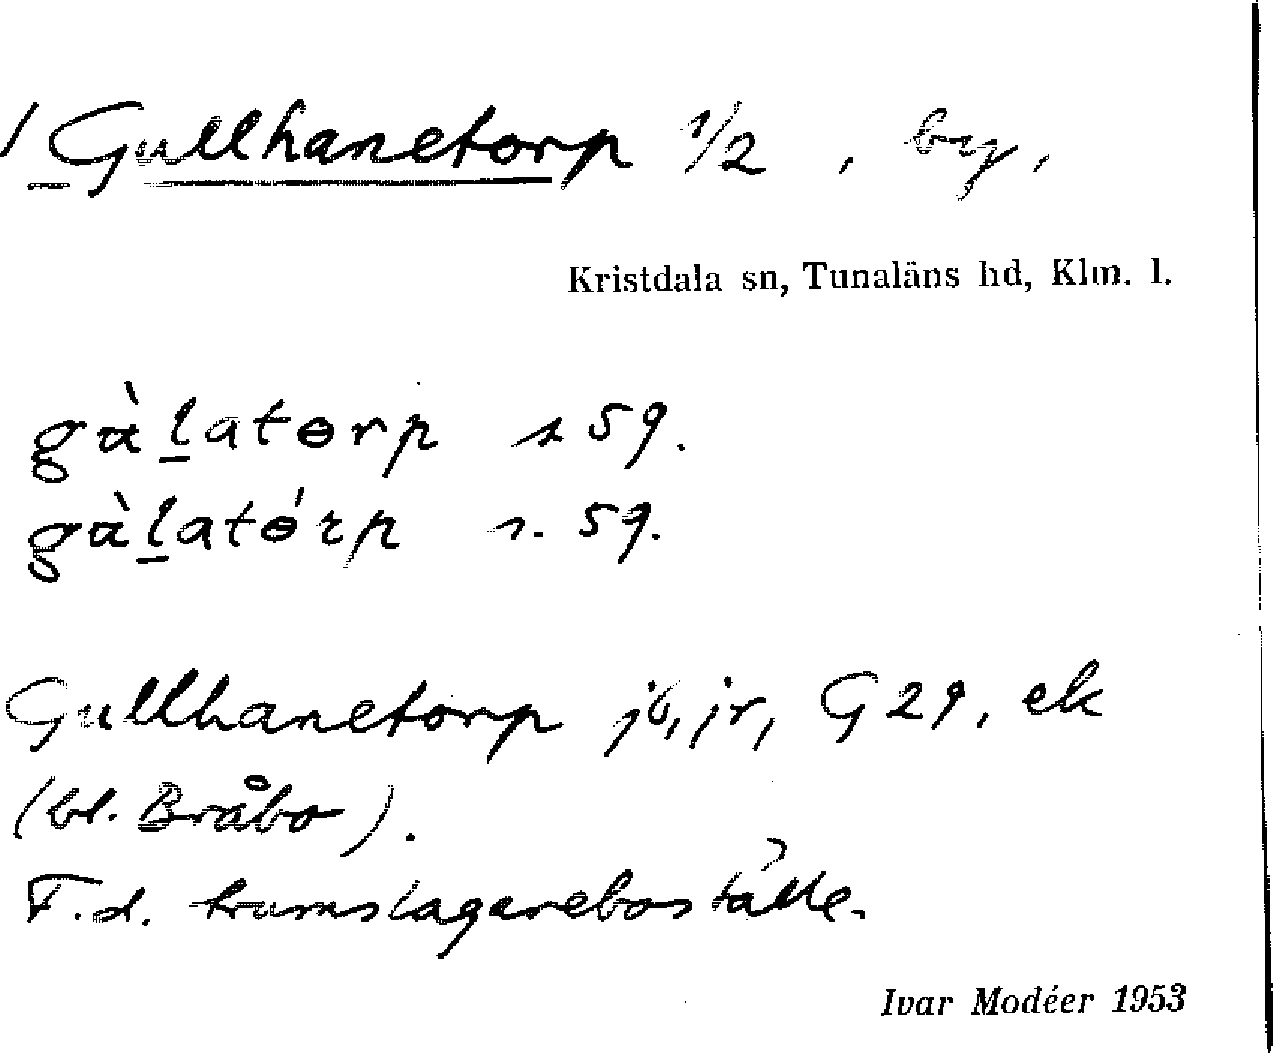 / Gullhanetorp 1/2 , by,
Kristdala sn, Tunaläns hd, Klm. l.
gɑ̀l̠atɵrp s 59.
gɑ̀l̠atɵ́rp s. 59.
Gullhanetorp jb, jr, G 29, ek
(bl. Bråbo).
F.d. trumslagareboställe.
Ivar Modéer 1953